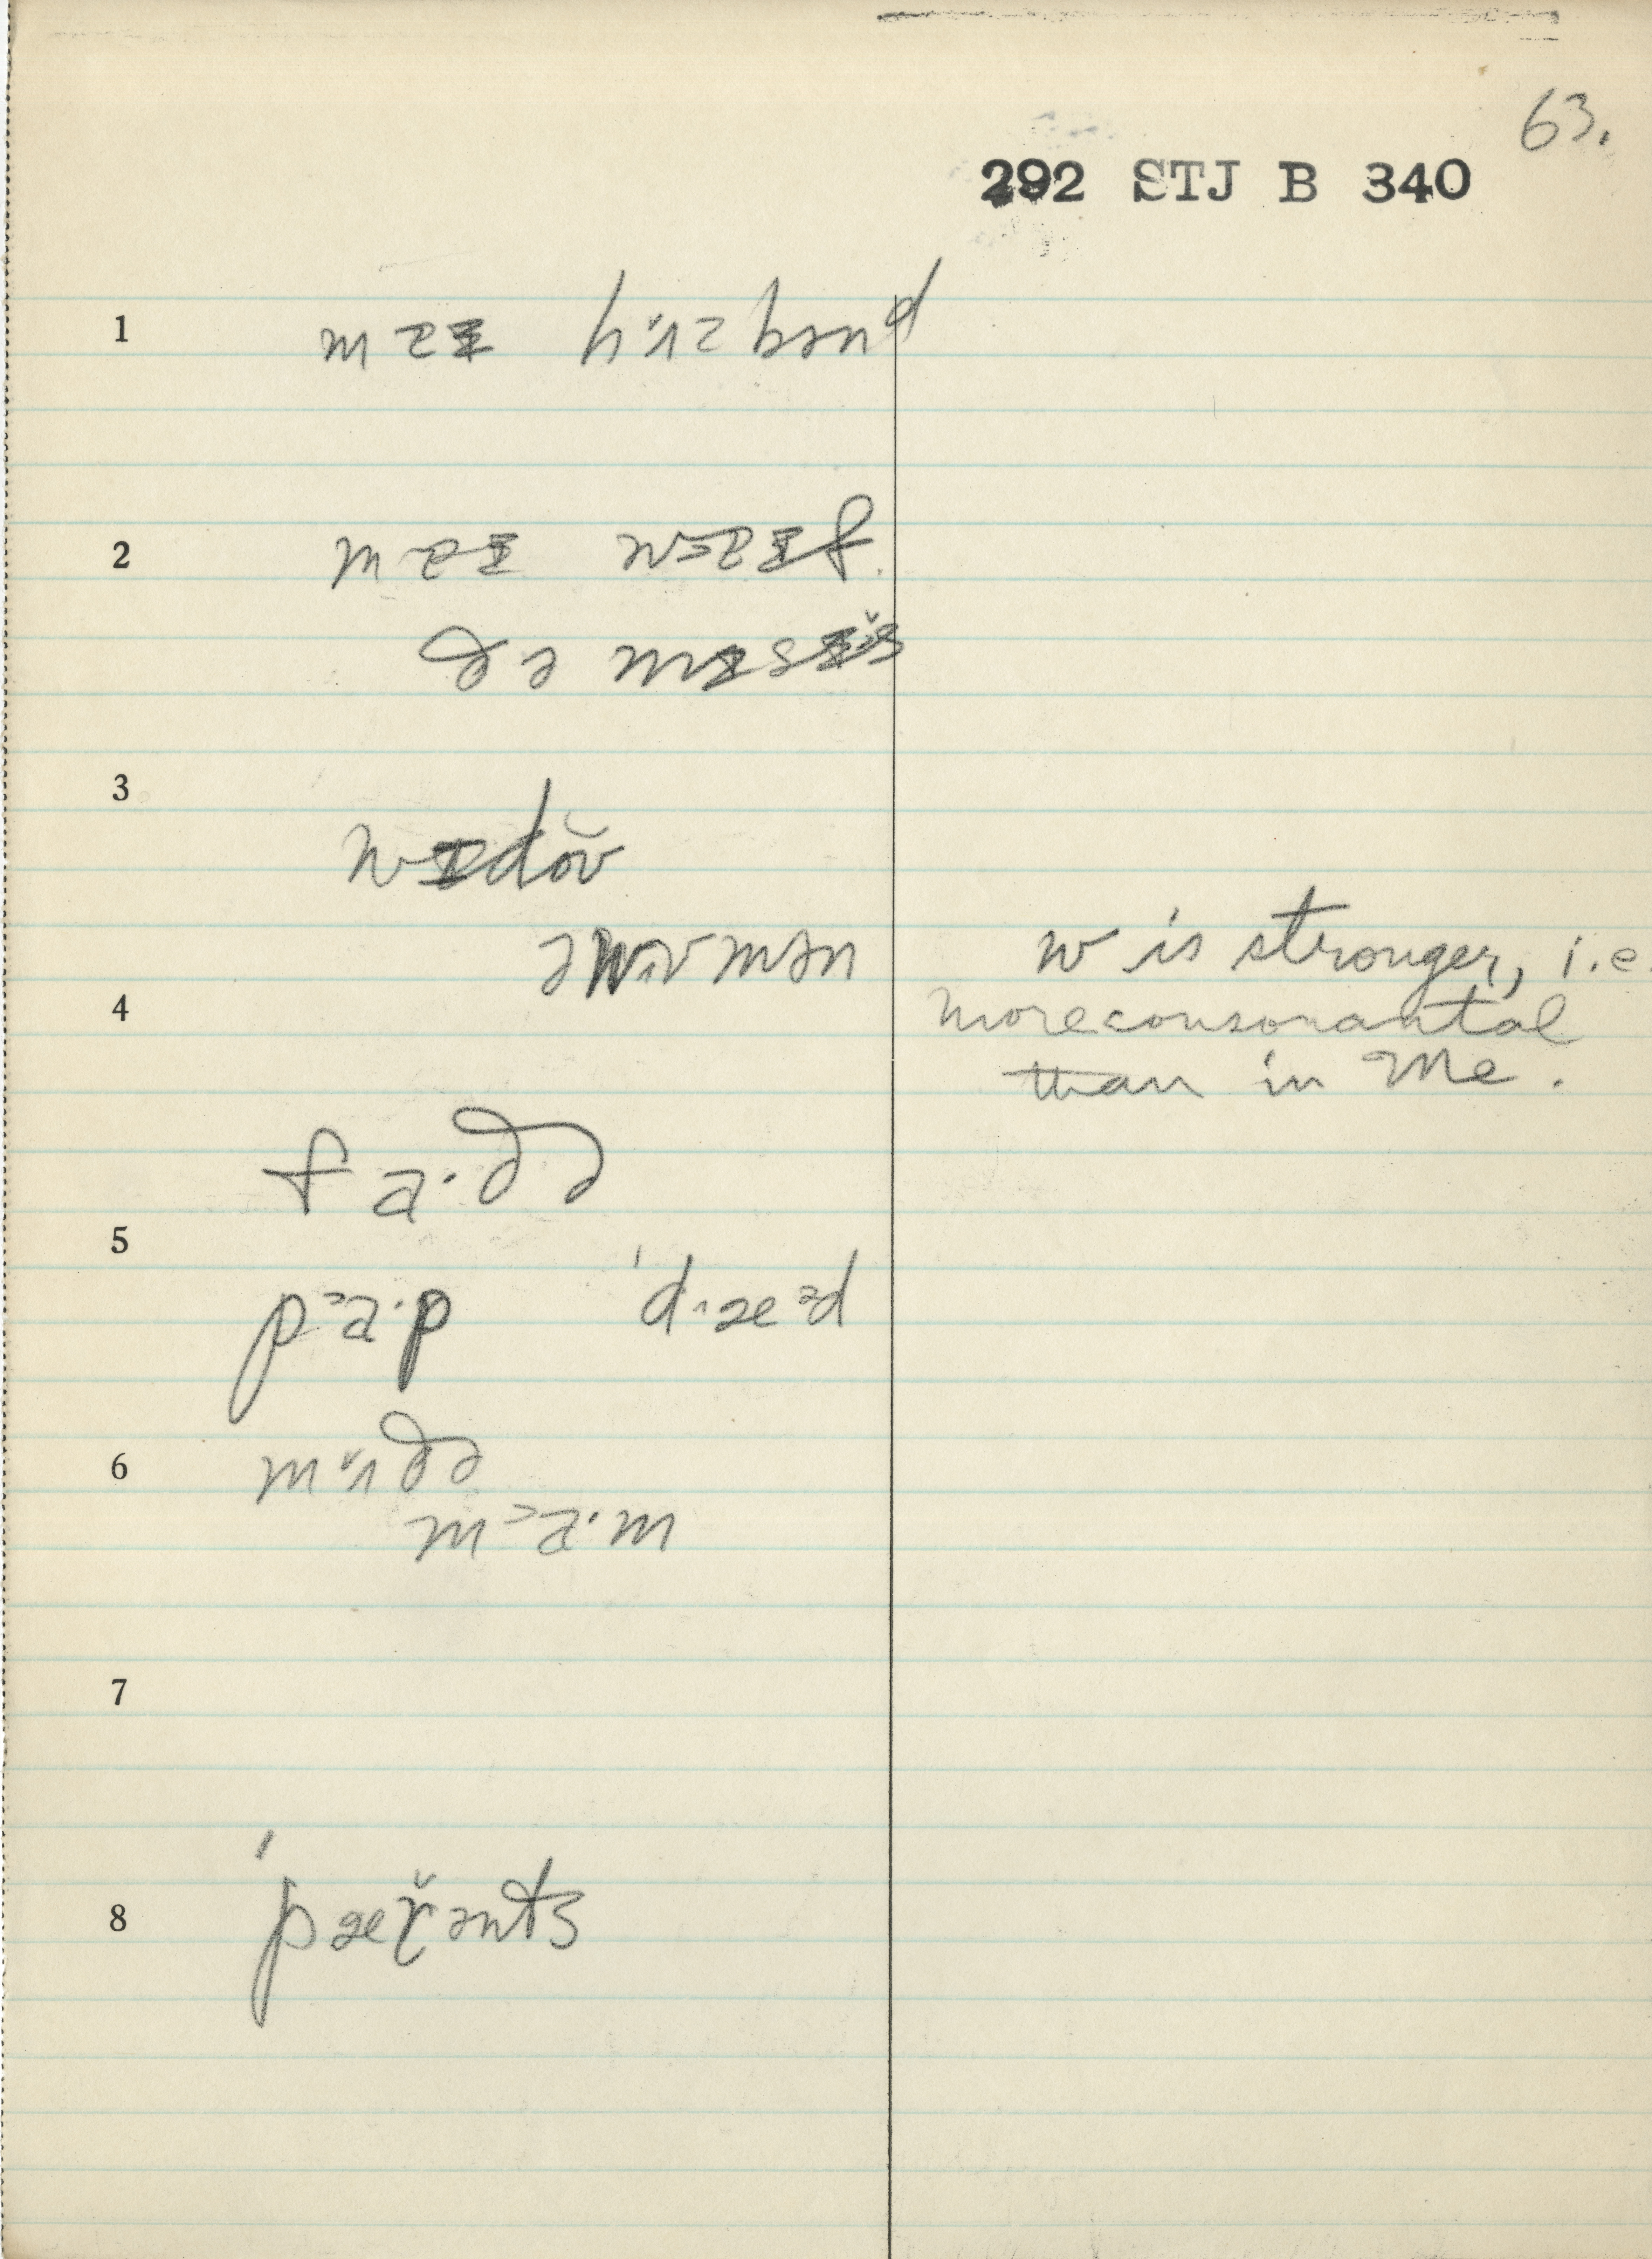 63.
292 STJ B 340
1 maɪ hʌzbənᵈ
2 maɪ waɪf
ðə mɪsɪs
3 wɪdŏʊ
4 ə wʊmən w is stronger, i.e.
more consonantal
than in Me.
fa·ðə
5 pᵊa·p ˈdæᵊd
6 mʌðə
mᵊa·m
7
8 ˈpærənts